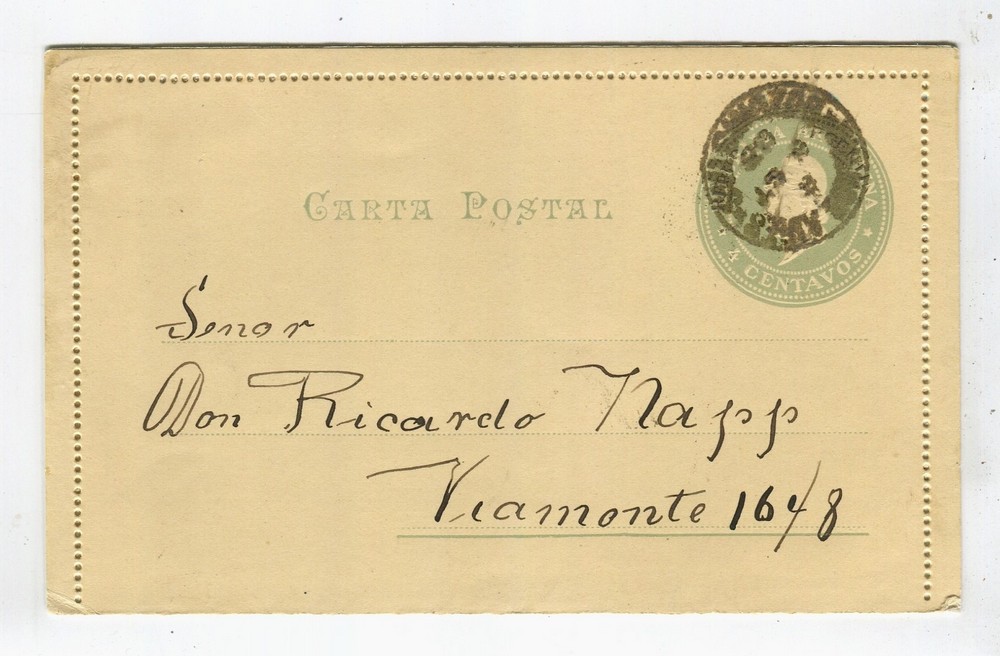 CARTA POSTAL
4 CENTAVOS
Senor
Don Ricardo Napp
Viamonte 1648